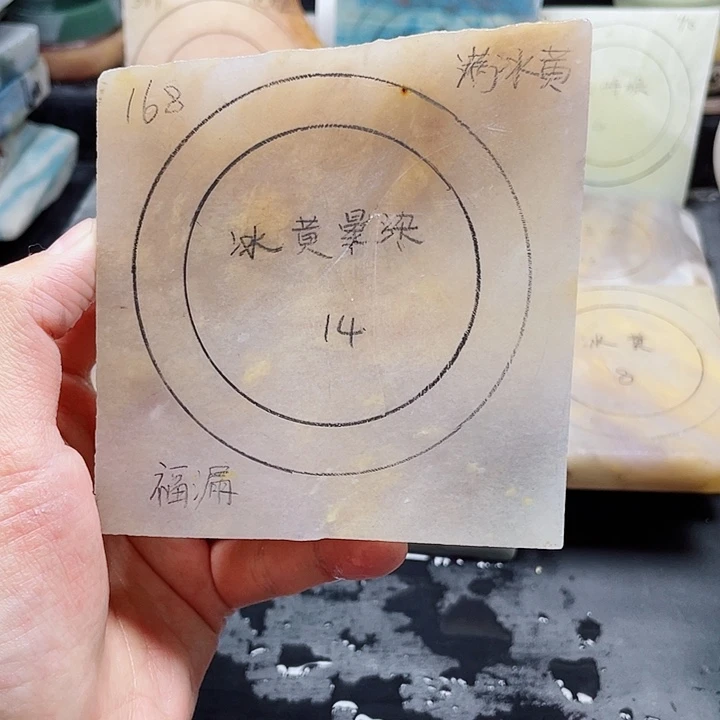 168
满冰黄
冰黄晕染
14
福漏
冰黄
8